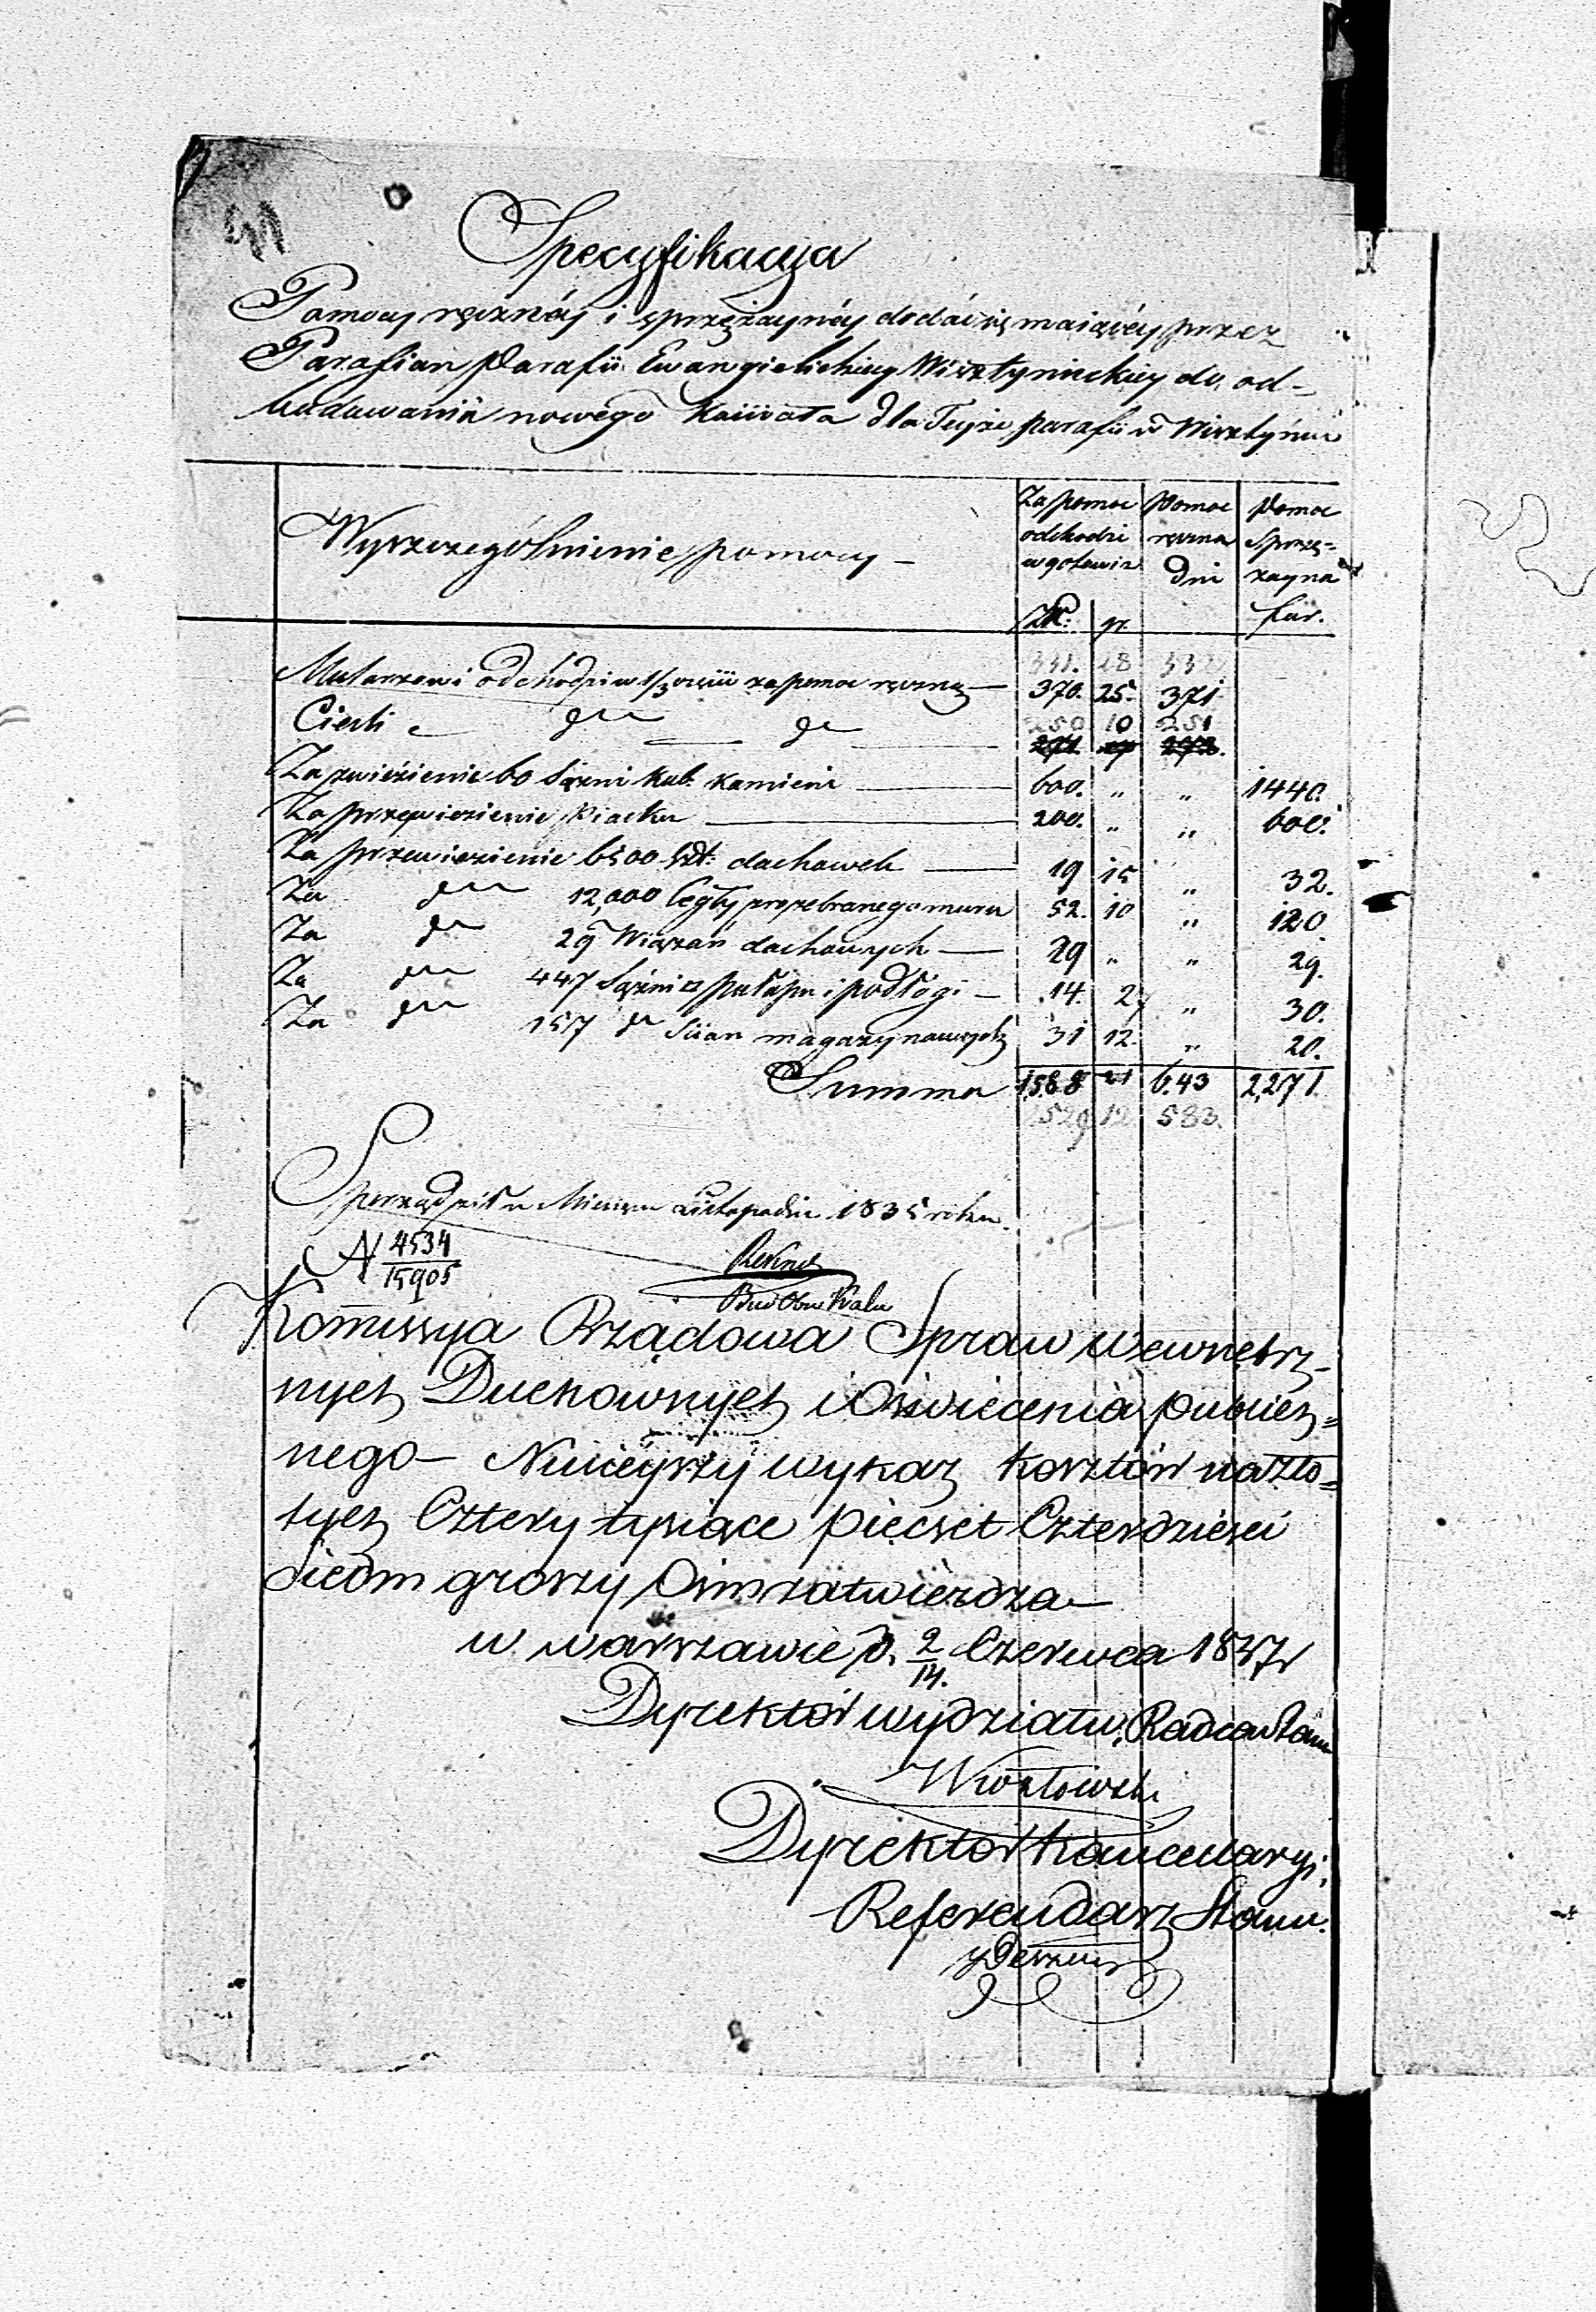 Specyfikacya
Pomocy ręcznéy i sprzężaynéy dodać się maiącéy przez
Parafian Parafii Ewangielickiey Wisztynieckiey do od-
budowania nowego Kościoła dla Teyże parafii w Wisztyńcu
Wyszczególnienie pomocy - Za pomoc odchodzi w gotowiz Pomoc ręczna Dni Pomoc Sprzę= zayna fur.
Złt: gr
331. 18 332
Mularzowi odchodzi w 1/3 części za pomoc ręczną — 370. 25. 371.
250 10 251
Cieśli dtto dto — 271 27 272.
Za zwiezienie 60 Sążni kub. kamieni — 600. " " 1440.
Za przewiezienie Piasku — 200. " " 600.
Za przewiezienie 6500 Szt: dachowek — 19 15 " 32.
Za dtto 12,000 Cegły z rozebranego muru 52. 10 " 120
Za dto 29 Wiązań dachowych — 29 " " 29.
Za dtto 447 Sążni □ pułapu i podłogi — 14. 27 " 30.
Za dtto 157 dto Ścian magazynowych 31 12. " 20.
Summa 1,588 21 6.43 2,271.
1529 12 583.
Sporządził w Miesiącu Listopadzie 1835 roku.
N 4534/15905
Bud Obw Kalw
Kommissya Rządowa Spraw Wewnętrz-
nych Duchownych i Oświecenia publicz=
nego — Ninieyszy wykaz kosztów na zło=
tych Cztery tysiące pięćset Czterdzieści
Siedm groszy Ośm zatwierdza—
w Warszawie d. 2/14. Czerwca 1837 r
Dyrektor wydziału, Radca Stanu
Dyrektor Kancellaryi,
Referendarz Stanu.